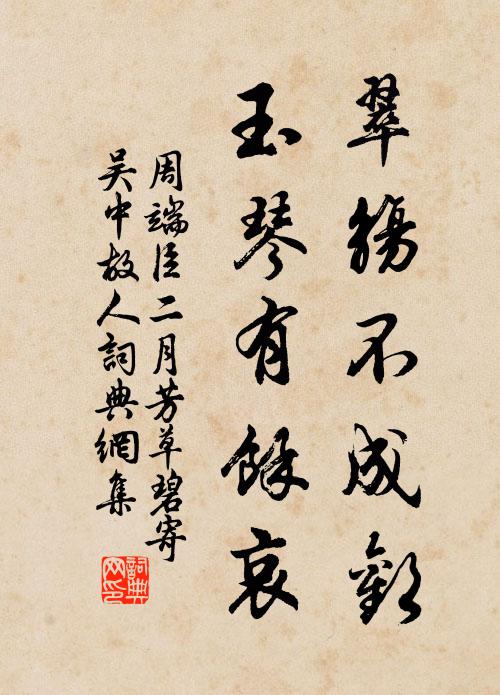 翠觴不成歡
玉琴有餘哀
周端臣二月芳草碧寄
吴中故人詞典網集
詞典
网印